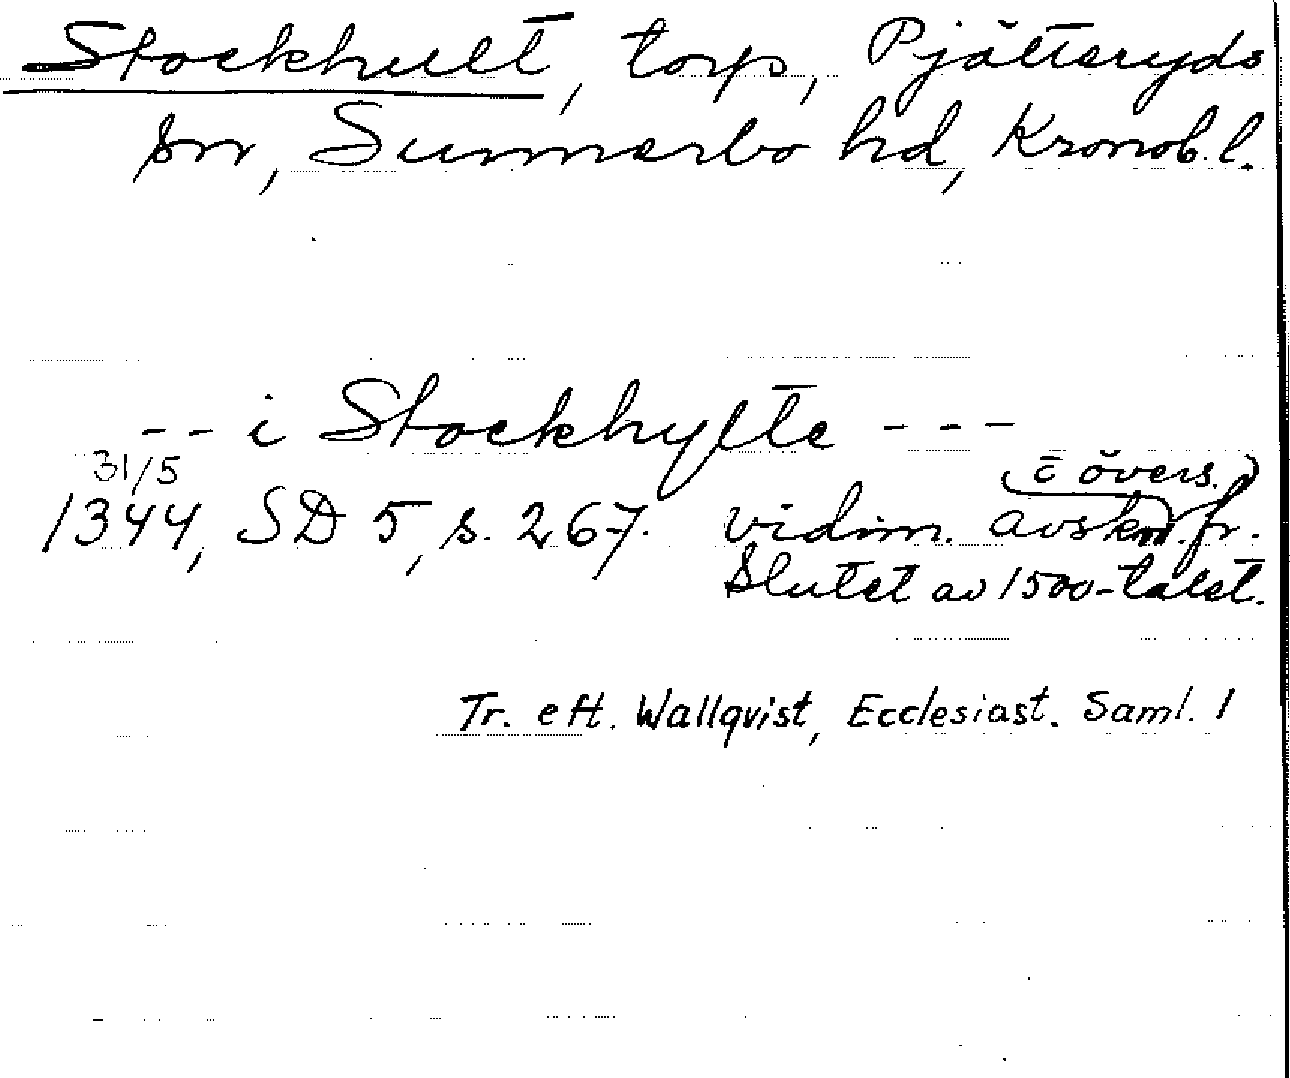 Stockhult, torp, Pjätteryds
sn, Sunnerbo hd, Kronob. l.
-- i Stockhylte ---
31/5
1344, SD 5, s. 267. vidim. avskr. fr.
(o övers.)
slutet av 1500-talet.
Tr. eft. Wallqvist, Ecclesiast. Saml. 1